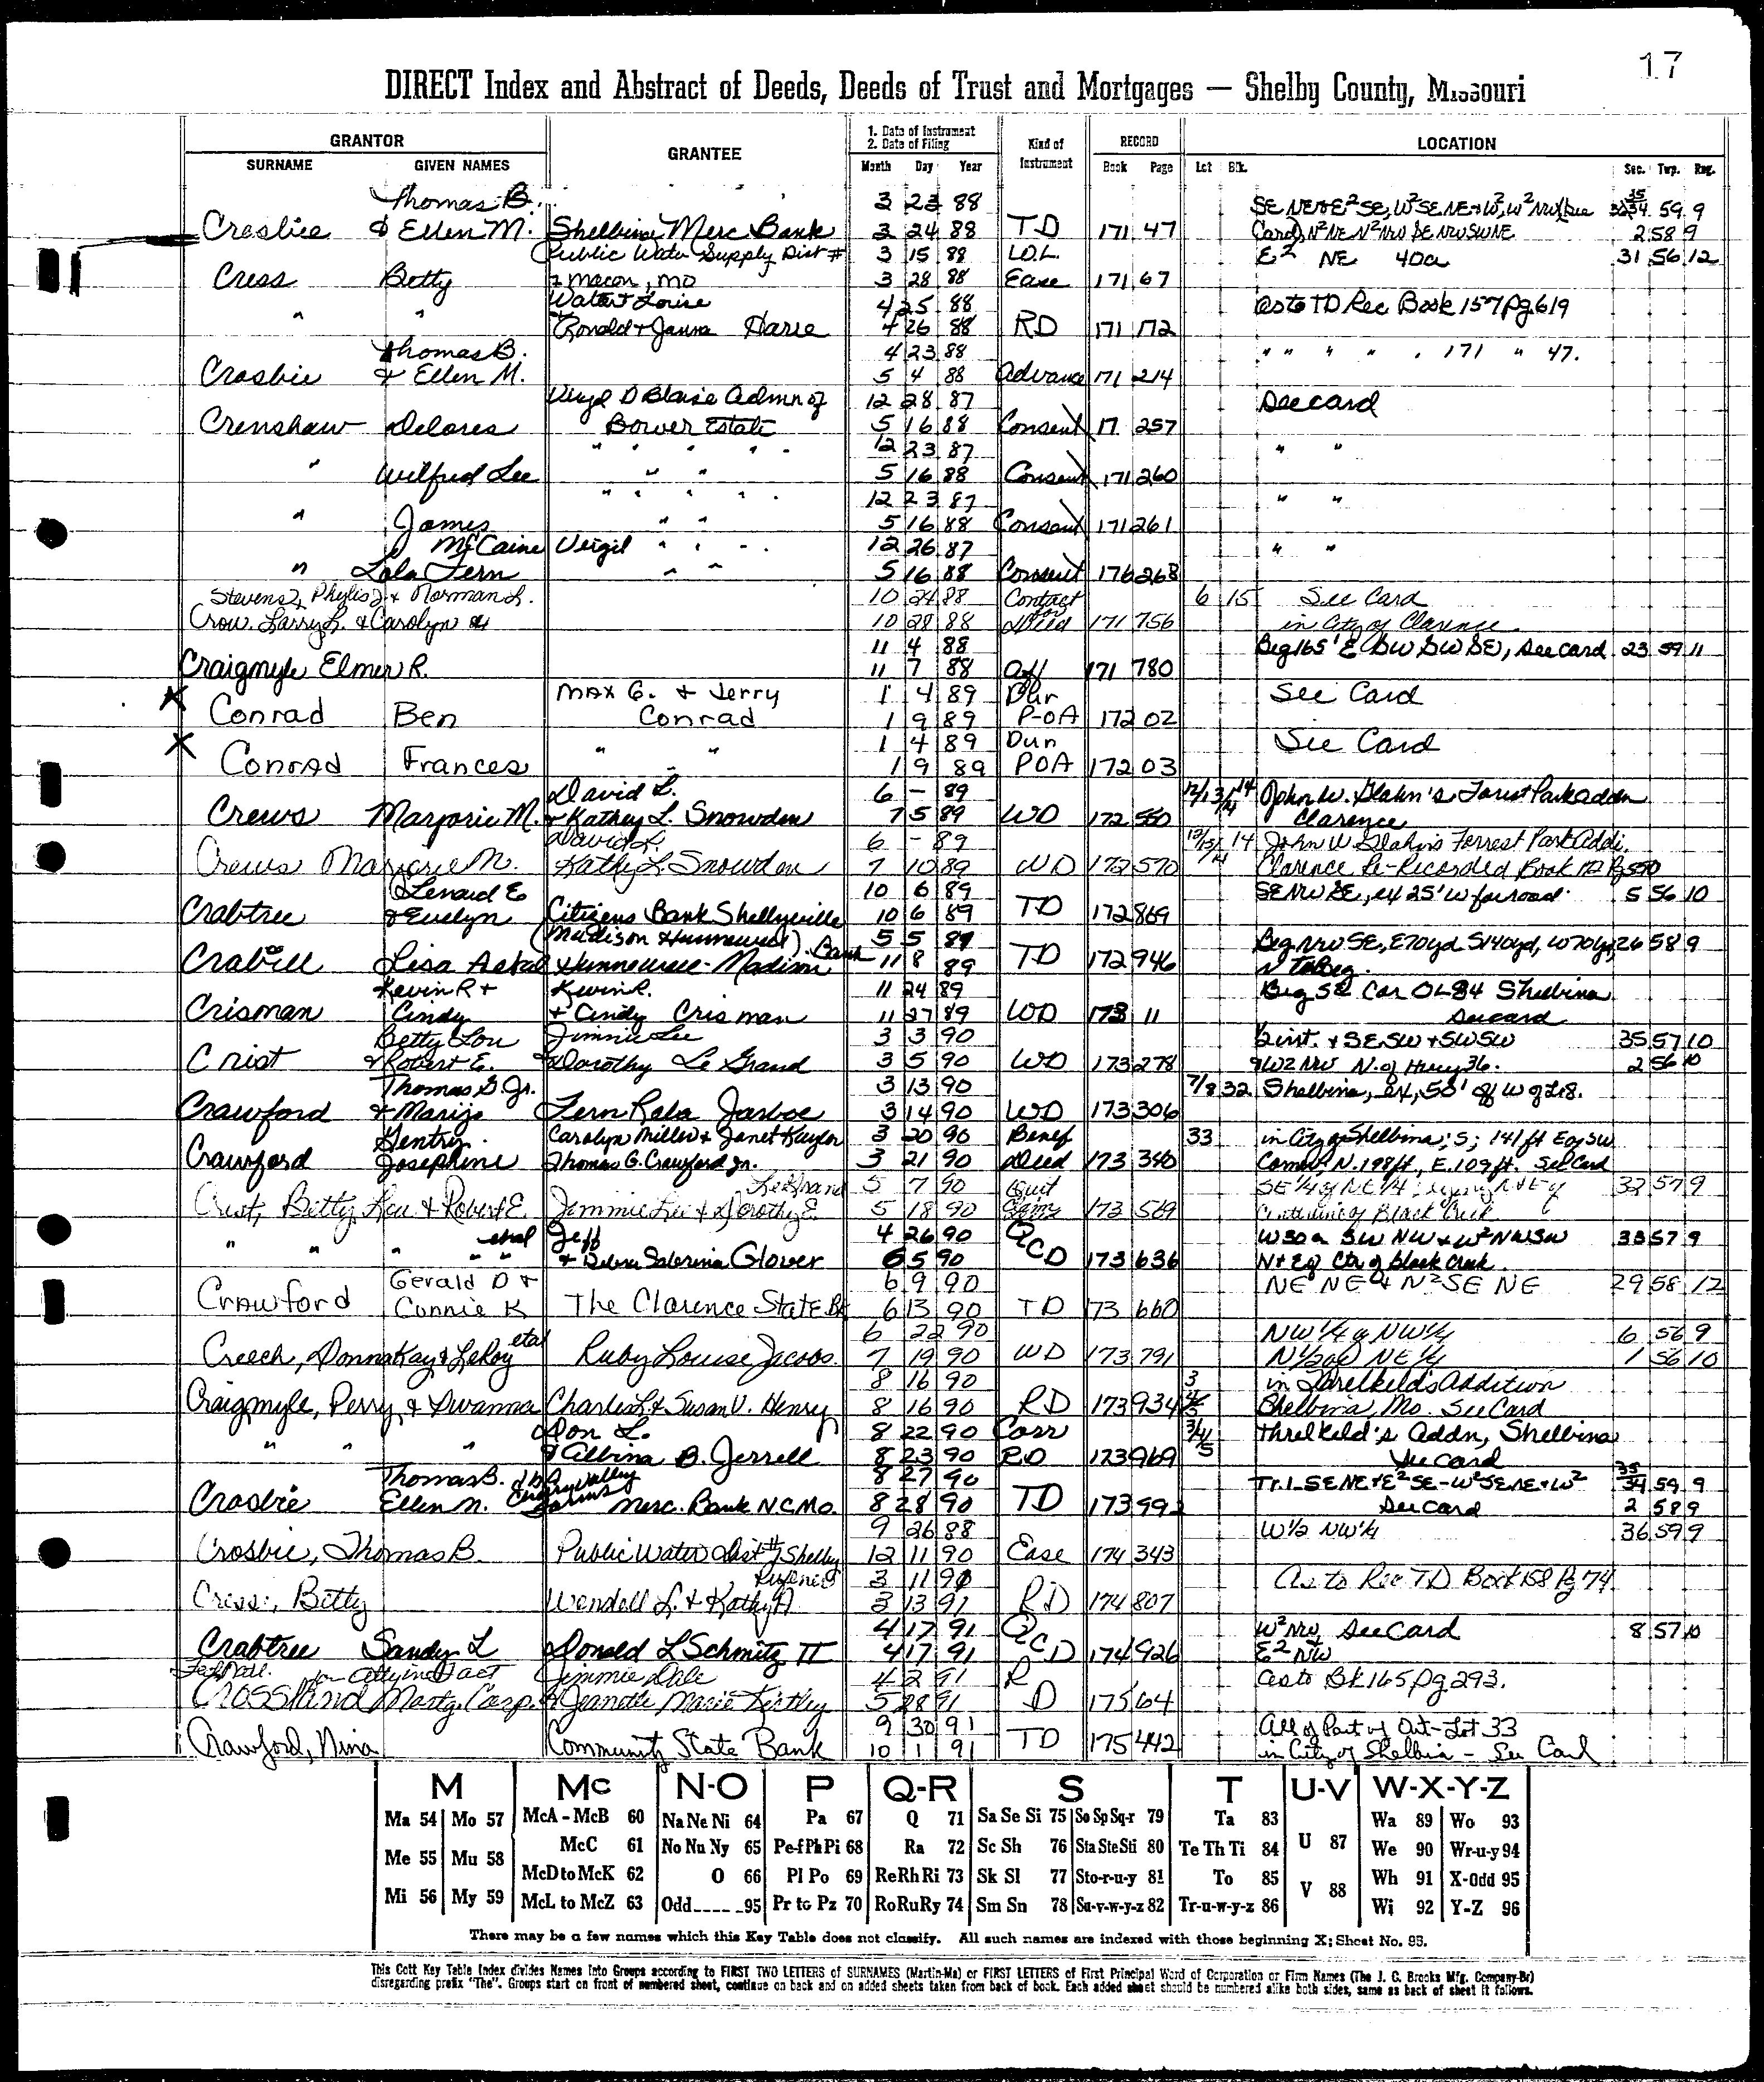 17
DIRECT Index and Abstract of Deeds, Deeds of Trust and Mortgages — Shelby County, Missouri
GRANTOR GRANTEE 1. Date of Instrument 2. Date of Filing Kind of Instrument RECORD LOCATION
SURNAME GIVEN NAMES Month Day Year Book Page Lot Blk. Sec. Twp. Rng.
Thomas B. 3 23 88 SE NE & E² SE, W² SE NE & W², W² NW (See 34 59 9
Crosbie & Ellen M. Shelbina Merc Bank 3 24 88 TD 171 47 Card) N² NE N² NW SE NW SW NE 2 58 9
Public Water Supply Dist # 3 15 88 E² NE 40a 31 56 12
Cress Betty 1 Macon, MO 3 28 88 Ease 171 67
Walter & Louise 4 25 88 as to TD Rec Book 157 Pg 619
" " Ronald & Janna Harre 4 26 88 RD 171 172
Thomas B. 4 23 88 " " " " " 171 " 47.
Crosbie & Ellen M. 5 4 88 Advance 171 214
Virgil D Blaise Admn of 12 28 87 See card
Crenshaw Delores Bower Estate 5 16 88 Consent 17 257
" " " " " 12 23 87 " "
" Wilfred Lee " " 5 16 88 Consent 171 260
" " " " " 12 23 87 " "
" James " " 5 16 88 Consent 171 261
McCaine Virgil " " " 12 26 87 " "
" Lola Fern " " 5 16 88 Consent 176 268
Stevens, Phylis J. & Norman L. 10 24 88 Contact 6 15 See Card
Crow, Larry L. & Carolyn 10 28 88 for Deed 171 756 in City of Clarence
11 4 88 Beg 165' E SW SW SE, see card 23 59 11
Craigmyle Elmer R. 11 7 88 Aff 171 780
X Max G. & Jerry 1 4 89 Dur See Card
Conrad Ben Conrad 1 9 89 P-OA 172 02
X " " 1 4 89 Dur See Card
Conrad Frances 1 9 89 POA 172 03
David L. 6 – 89 12/13/14 14 John W. Glahn's Forest Park addn
Crews Marjorie M. & Kathey L. Snowden 7 5 89 WD 172 550 Clarence
David L. 6 – 89 12/13/14 14 John W Glahn's Forrest Park Addi.
Crews Marjorie M. Kathy L. Snowden 7 10 89 WD 172 570 Clarence Re-Recorded Book 172 Pg 550
Lenard E 10 6 89 SE NW SE, ex 25' W for road 5 56 10
Crabtree & Evelyn Citizens Bank Shelbyville 10 6 89 TD 172 869
(Madison & Hunnewell) Bank 5 5 89 Beg NW SE, E70yd S140yd, W70yd, 26 58 9
Crabill Lisa Hunnewell-Madison 11 8 89 TD 172 946 N to Beg.
Kevin R & Kevin R. 11 24 89 Beg SE Cor OL 84 Shelbina
Crisman Cindy & Cindy Crisman 11 27 89 WD 173 11 See card
Betty Lou Jimmie Lee 3 3 90 ½ int. & SE SW & SW SW 35 57 10
Crist & Robert E. & Dorothy Le Grand 3 5 90 WD 173 278 & W2 NW N. of Hwy 36. 2 56 10
Thomas G. Jr. 3 13 90 7/8 32 Shelbina, ex, 50' off W of L8.
Crawford & Marijo Fern Rala Jarboe 3 14 90 WD 173 306
Gentry Carolyn Miller & Janet Kaylor 3 20 90 Benef 33 in City of Shelbina; S; 141 ft E of SW
Crawford Josephine Thomas G. Crawford Jr. 3 21 90 Deed 173 340 Corner, N. 198 ft., E. 109 ft. See Card
LeGrand 5 7 90 Quit SE 1/4 of NE 1/4 N & E of 32 57 9
Crist, Betty Lou & Robert E. Jimmie Lee & Dorothy E. 5 18 90 Claim 173 569 Centerline of Black Creek
etal Jeff 4 26 90 W 30 a SW NW & W² NW SW 33 57 9
" " " " " & Debra Sabrina Glover 6 5 90 QCD 173 636 N & E of Ctr of black Creek
Gerald D & 6 9 90 NE NE & N² SE NE 29 58 12
Crawford Connie K The Clarence State Bk 6 13 90 TD 173 660
etal 6 22 90 NW 1/4 of NW 1/4 6 56 9
Creech, Donna Kay & LeRoy Ruby Louise Jacobs 7 19 90 WD 173 791 N 1/2 of NE 1/4 1 56 10
8 16 90 3 in Threlkeld's Addition
Craigmyle, Perry & Dwanna Charles L & Susan V. Henry 8 16 90 RD 173 934 4/5 Shelbina, Mo. See Card
Don L. 8 22 90 Corr 3/4/5 Threlkeld's Addn, Shelbina
" " " & Albina B. Jerrell 8 23 90 RD 173 969 See card
Thomas B. dba Cherry Valley Farms 8 27 90 Tr. 1-SE NE & E² SE - W² SE NE & W² 35/34 59 9
Crosbie Ellen M. Merc. Bank N.C. Mo. 8 28 90 TD 173 992 See card 2 58 9
9 26 88 W 1/2 NW 1/4 36 59 9
Crosbie, Thomas B. Public Water Dist # 1 Shelby 12 11 90 Ease 174 343
3 11 91 As to Rec TD Book 158 Pg 74
Cress, Betty Wendell L. & Kathy A 3 13 91 RD 174 807
4 17 91 W² NW See Card 8 57 10
Crabtree Sandy L Donald L Schmitz II 4 17 91 QCD 174 926 E² NW
Fed Natl. for Atty in Fact Jimmie Dale 4 2 91 R as to Bk 165 pg 293.
Crossland Mortg. Corp. & Jeanette Marie Kirtley 5 28 91 D 175 64
9 30 91 All of Part of Out-Lot 33
Crawford, Nina Community State Bank 10 1 91 TD 175 442 in City of Shelbia - See Card
M Mc N-O P Q-R S T U-V W-X-Y-Z
Ma 54 Mo 57 McA - McB 60 Na Ne Ni 64 Pa 67 Q 71 Sa Se Si 75 So Sp Sq-r 79 Ta 83 U 87 Wa 89 Wo 93
Me 55 Mu 58 McC 61 No Nu Ny 65 Pe-f Ph Pi 68 Ra 72 Sc Sh 76 Sta Ste Sti 80 Te Th Ti 84 We 90 Wr-u-y 94
McD to McK 62 O 66 Pl Po 69 Re Rh Ri 73 Sk Sl 77 Sto-r-u-y 81 To 85 V 88 Wh 91 X-Odd 95
Mi 56 My 59 McL to McZ 63 Odd 95 Pr to Pz 70 Ro Ru Ry 74 Sm Sn 78 Su-v-w-y-z 82 Tr-u-w-y-z 86 Wi 92 Y-Z 96
There may be a few names which this Key Table does not classify. All such names are indexed with those beginning X; Sheet No. 95.
This Cott Key Table Index divides Names Into Groups according to FIRST TWO LETTERS of SURNAMES (Martin-Ma) or FIRST LETTERS of First Principal Word of Corporation or Firm Names (The J. C. Brooks Mfg. Company-Br)
disregarding prefix "The". Groups start on front of numbered sheet, continue on back and on added sheets taken from back of book. Each added sheet should be numbered alike both sides, same as back of sheet it follows.